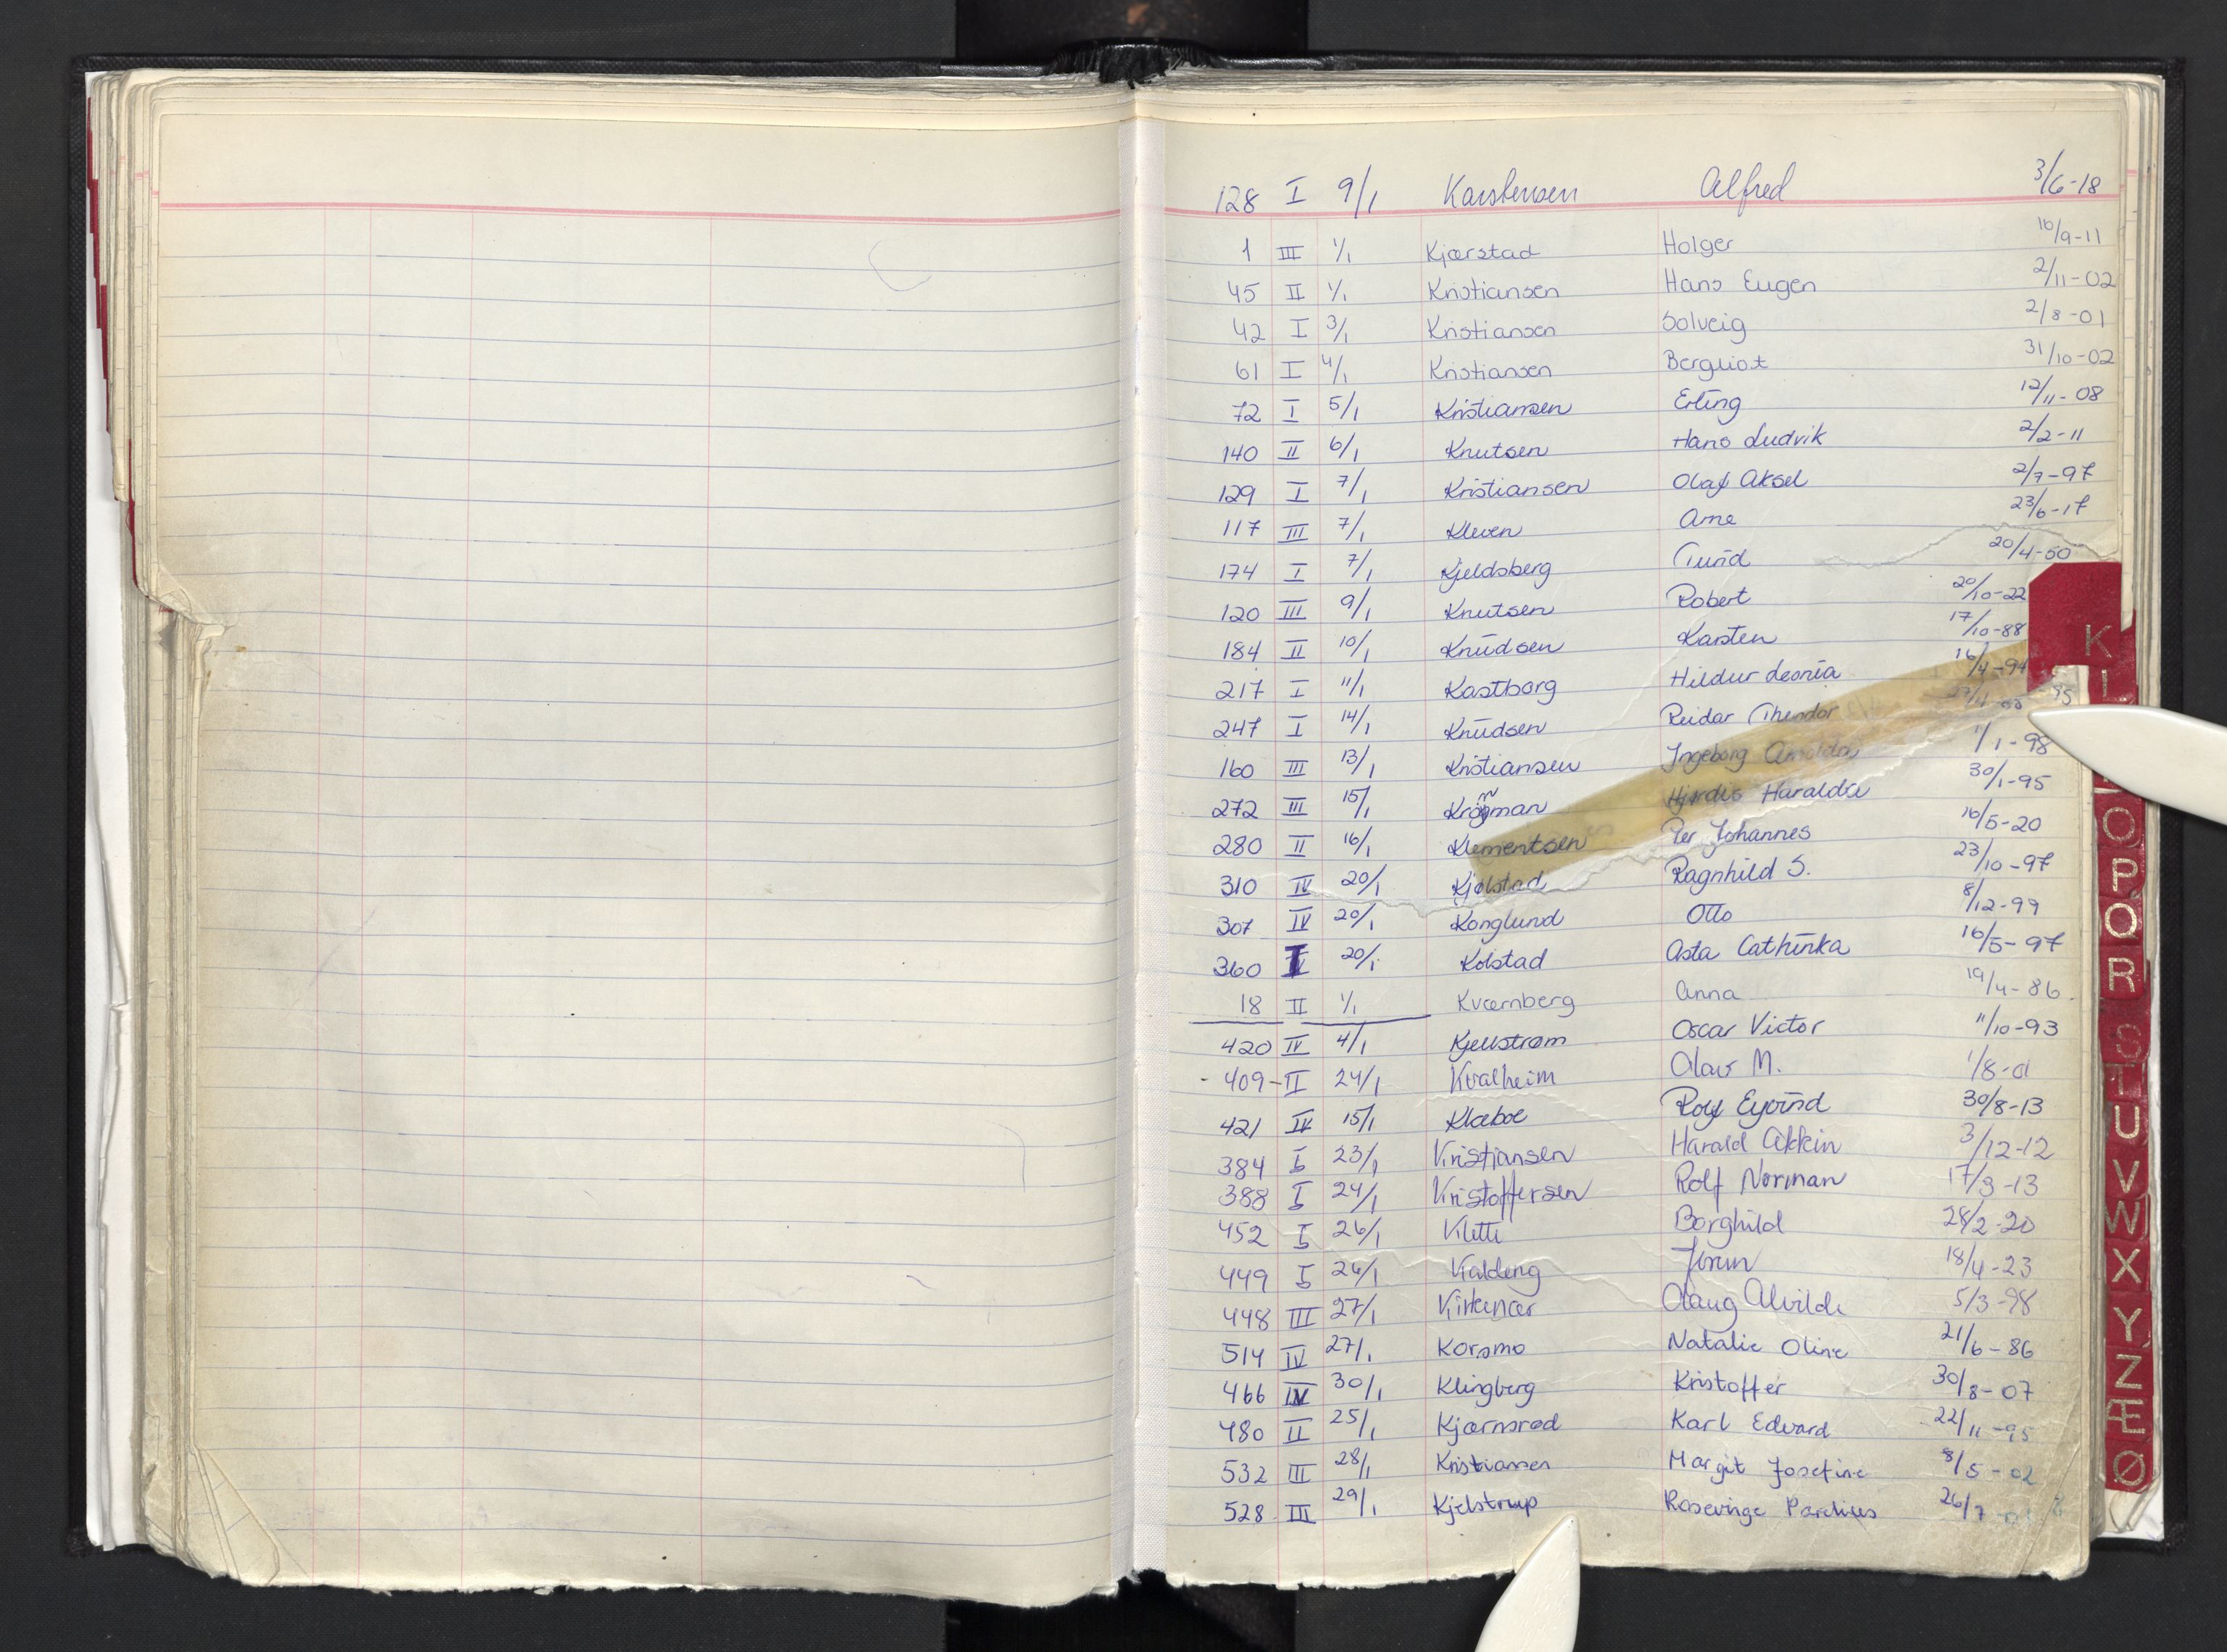 128 I 9/1 Karstensen Alfred 3/6-18
1 III 1/1 Kjærstad Holger 16/9-11
45 II 1/1 Kristiansen Hans Eugen 2/11-02
42 I 3/1 Kristiansen Solveig 2/8-01
61 I 4/1 Kristiansen Bergliot 31/10-02
72 I 5/1 Kristiansen Erling 12/11-08
140 II 6/1 Knutsen Hans Ludvik 2/2-11
129 I 7/1 Kristiansen Olaf Aksel 2/7-97
117 III 7/1 Kleven Arne 23/6-17
174 I 7/1 Kjeldsberg Turid 20/4-50
120 III 9/1 Knutsen Robert 20/10-22
184 II 10/1 Knudsen Karsten 17/10-88
217 I 11/1 Kastborg Hildur Leonia 16/4-94
247 I 14/1 Knudsen Reidar Theodor
160 III 13/1 Kristiansen Ingeborg 1/1-98
272 III 15/1 Hjørdis Haralda 30/1-95
280 II 16/1 Klementsen Per Johannes 16/5-20
310 IV 20/1 Kjølstad Ragnhild S. 23/10-97
307 IV 20/1 Konglund Otto 8/12-99
360 20/1 Kolstad Asta Cathinka 16/5-97
18 II 1/1 Kværnberg Anna 19/4-86.
420 IV 4/1 Kjellstrøm Oscar Victor 11/10-93
- 409-II 24/1 Kvalheim Olav M. 1/8-01
421 IV 15/1 Klæboe Rolf Eyvind 30/8-13
384 I b 23/1 Kristiansen Harald 3/12-12
388 I b 24/1 Kristoffersen Rolf Norman 17/3-13
452 I b 26/1 Klette Borghild 28/2-20
449 I b 26/1 Jorun 18/4-23
448 III 27/1 Kirkenær Olaug Alvilde 5/3-98
514 IV 27/1 Korsmo Natalie Oline 21/6-86
466 IV 30/1 Klingberg Kristoffer 30/8-07
480 II 25/1 Kjærnsrød Karl Edvard 22/11-95
532 III 28/1 Kristiansen Margit Josefine 8/5-02
528 III 29/1 Kjelstrup Rosevinge 26/7
K
L
O
P
Q
R
S
T
U
V
W
X
Y
Z
Æ
Ø